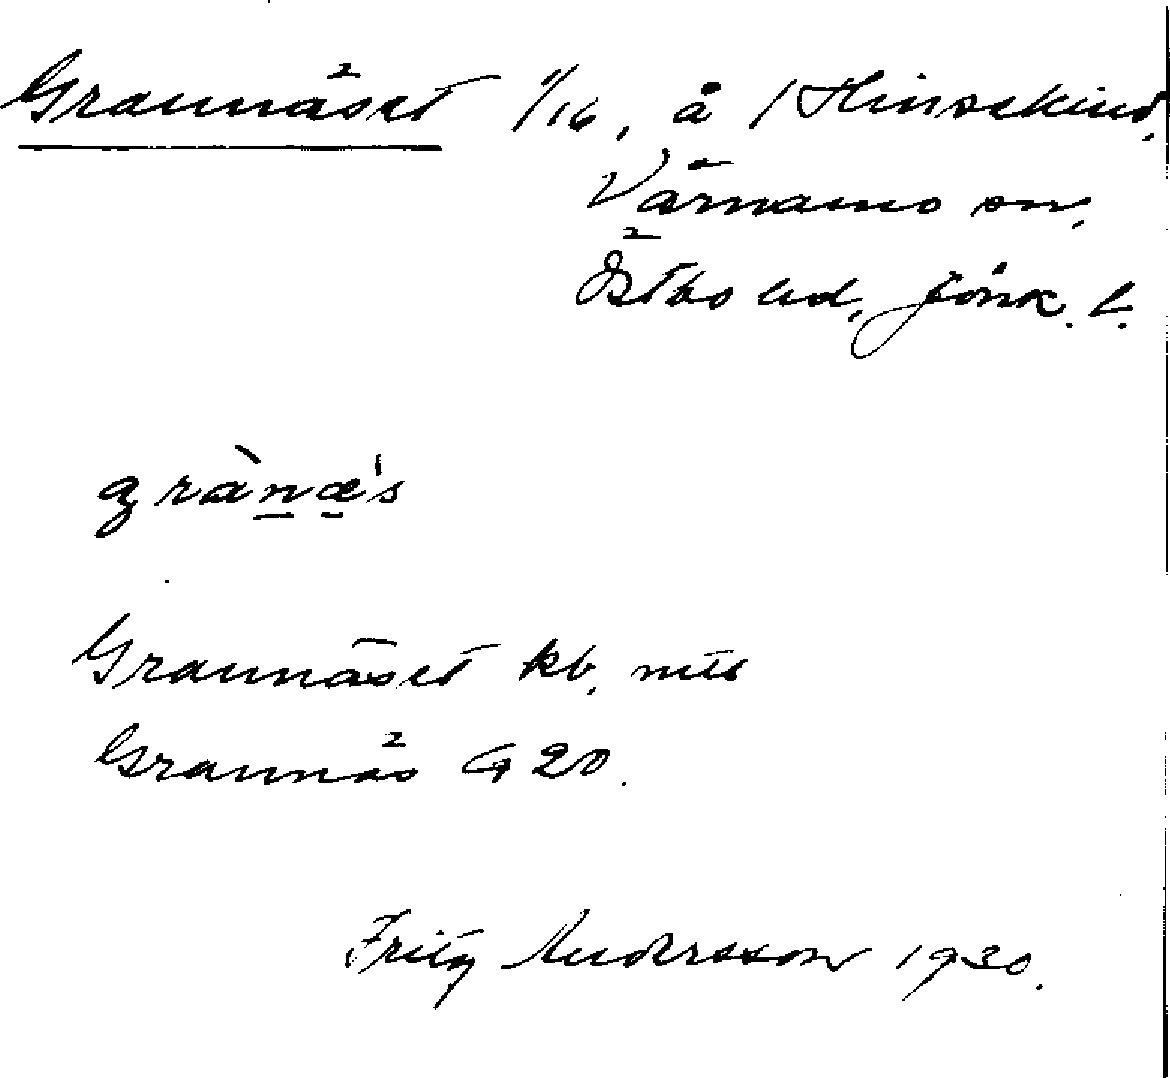 Grannäset 1/16, å 1 Hinsekind,
Värnamo sn,
Östbo hd, Jönk. l.
grànæ's
Grannäset kb, mtl
Grannäs G 20.
Fritz Andersson 1930.